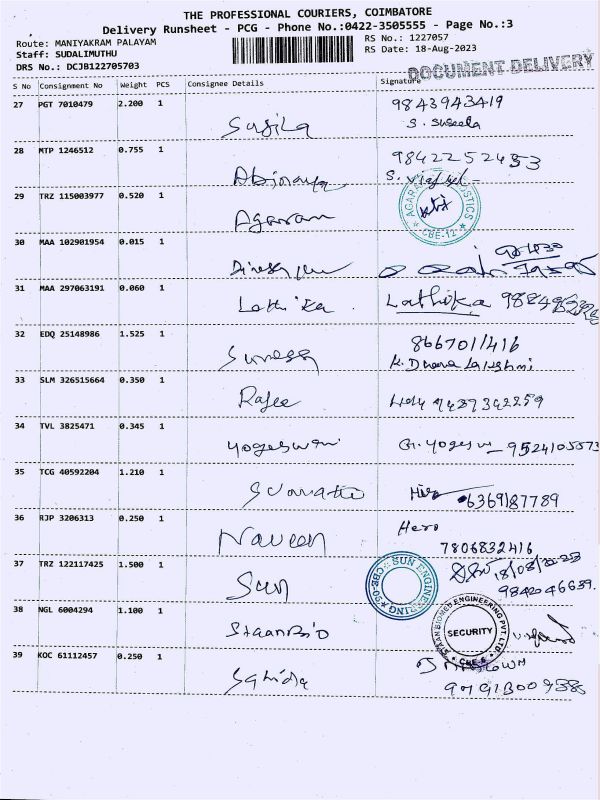 THE PROFESSIONAL COURIERS, COIMBATORE
Delivery Runsheet - PCG - Phone No.:0422-3505555 - Page No.:3
Route: MANIYAKRAM PALAYAM
RS No.: 1227057
Staff: SUDALIMUTHU
RS Date: 18-Aug-2023
DRS No.: DCJB122705703
DOCUMENT DELIVERY
S No Consignment No Weight PCS Consignee Details Signature
27 PGT 7010479 2.200 1 9843943419
Sugila S. Suseela
28 MTP 1246512 0.755 1 9842252453
Abinaya S.
29 TRZ 115003977 0.520 1
Agaram
CBE-12
30 MAA 102901954 0.015 1
31 MAA 297063191 0.060 1
Lathika Lathika
32 EDQ 25148986 1.525 1 8667011416
Suressh K. Dhana Lakshmi
33 SLM 326515664 0.350 1
Rajee 9487342259
34 TVL 3825471 0.345 1
Yogeswari G. Yoges 9524105573
35 TCG 40592204 1.210 1
6369187789
36 RJP 3206313 0.250 1 Hero
Naveen 7806832416
37 TRZ 122117425 1.500 1 18/08/2023
Sun SUN ENGINEERING CBE-09 9842046639.
38 NGL 6004294 1.100 1
StaanBio STAAN BIOMED ENGINEERING PVT. LTD SECURITY CBE-6
39 KOC 61112457 0.250 1